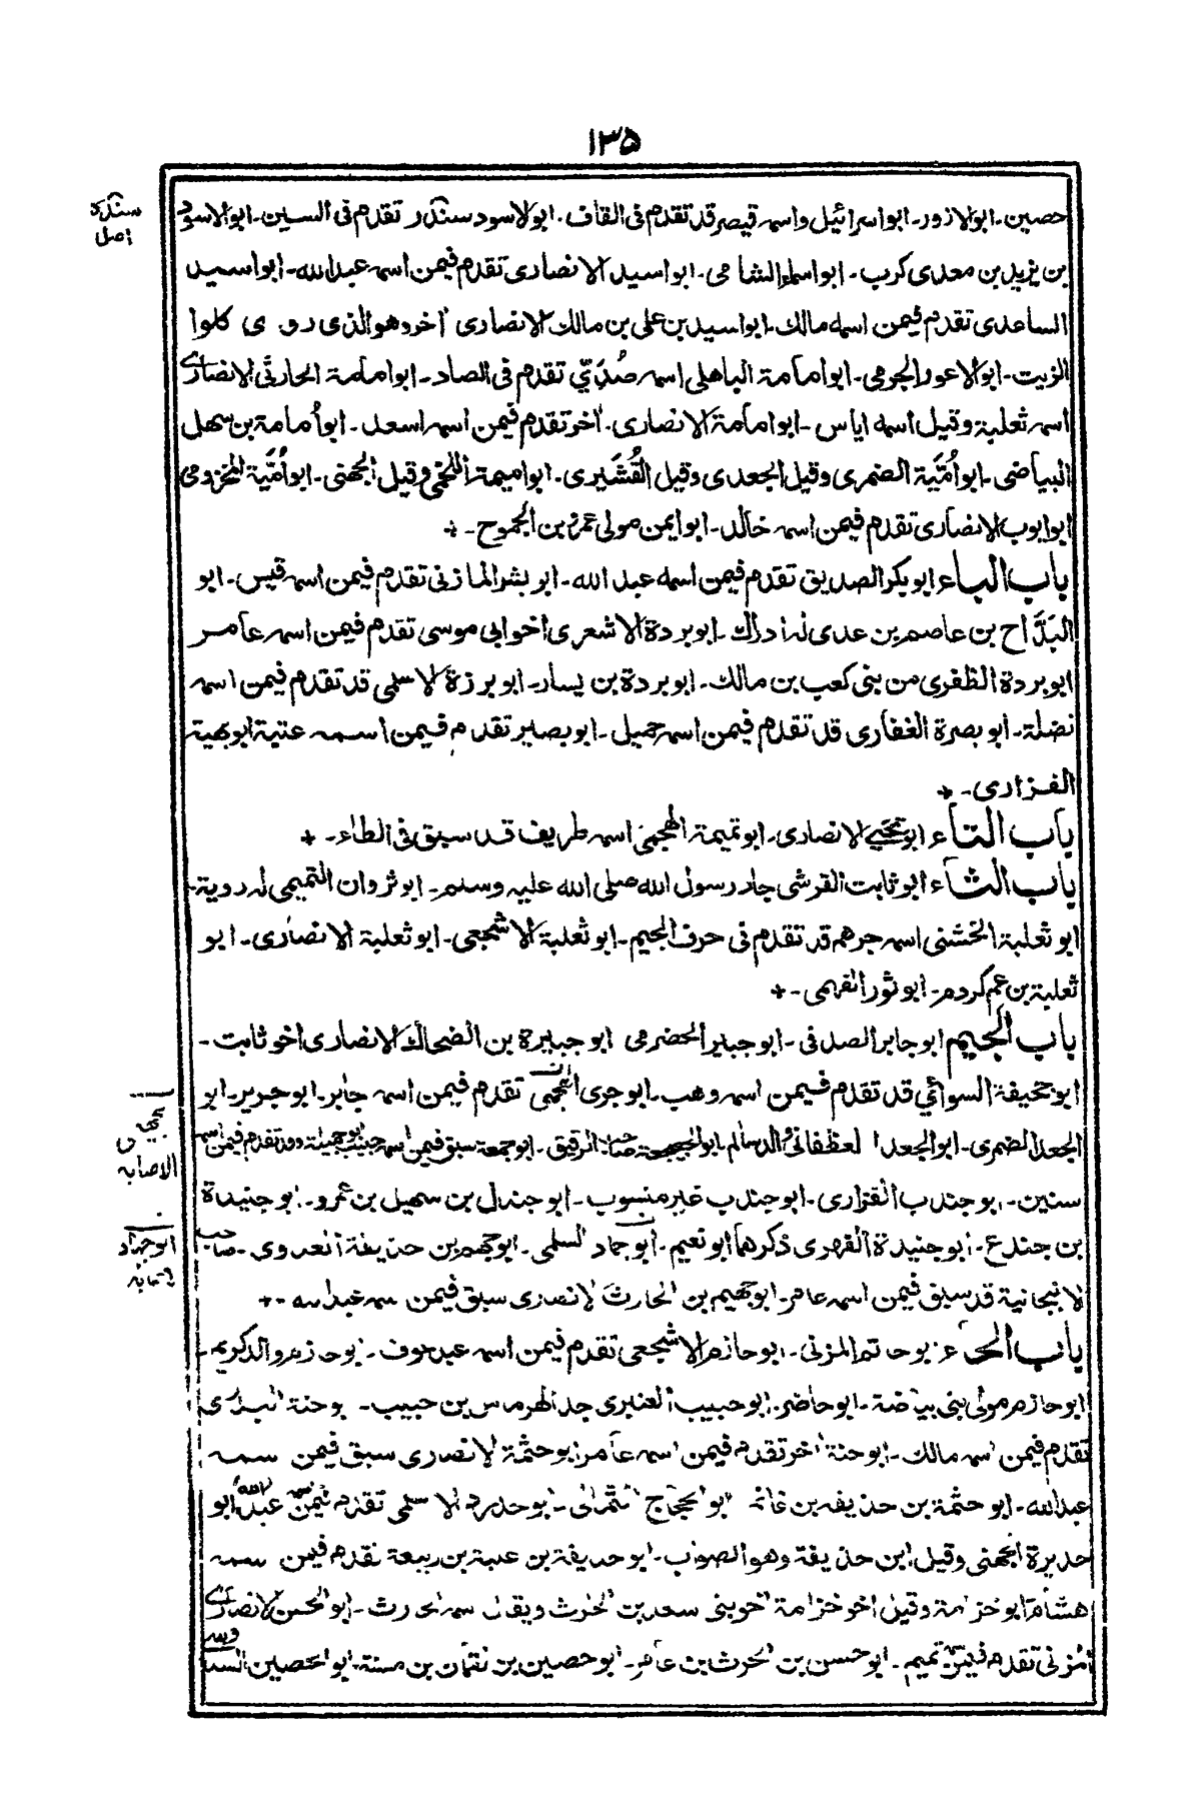 ١٣٥
حصين۔ ابوالازور۔ ابواسرائيل واسمه قيصر قد تقدم فى القاف۔ ابوالاسود سندر تقدم فى السين۔ ابوالاسود
سندر
اصل
بن يزيد بن معدى كرب۔ ابواسماء الشامى۔ ابواسيد الانصارى تقدم فيمن اسمه عبدالله۔ ابواسيد
الساعدى تقدم فيمن اسمه مالك۔ ابواسيد بن على بن مالك الانصارى اخر وهوالذى روى كلوا
الزيت۔ ابوالاعور الجرمى۔ ابوامامة الباهلى اسمه صُدَىّ تقدم فى الصاد۔ ابوامامة الحارثى الانصارى
اسمه ثعلبة وقيل اسمه اياس۔ ابوامامة الانصارى۔ اخر تقدم فيمن اسمه اسعد۔ ابوأمامة بن سهل
البياضى۔ ابوأُمَيَّة الضمرى وقيل الجعدى وقيل القُشَيرى۔ ابواميمة اللخمى وقيل الجهنى۔ ابوأُمَيَّة المخزومى
ابوايوب الانصارى تقدم فيمن اسمه خالد۔ ابوايمن مولى عمرو بن الجموح۔ +
باب الباء ابوبكر الصديق تقدم فيمن اسمه عبد الله۔ ابوبشر المازنى تقدم فيمن اسمه قيس۔ ابو
البَدَّاح بن عاصم بن عدى له ادراك۔ ابوبردة الاشعرى اخوابى موسى تقدم فيمن اسمه عامر
ابوبردة الظفرى من بنى كعب بن مالك۔ ابوبردة بن يسار۔ ابوبرزة الاسلمى قد تقدم فيمن اسمه
نضلة۔ ابوبصرة الغفارى قد تقدم فيمن اسمه جميل۔ ابوبصير تقدم فيمن اسمه عتبة ابوبهية
الفزارى۔ +
باب التاء ابوتحيى الانصارى۔ ابوتميمة الهجيمى اسمه طريف قد سبق فى الطاء۔ +
باب الثاء ابوثابت القرشى جار رسول الله صلى الله عليه وسلم۔ ابوثروان التميمى له روية۔
ابوثعلبة الخشنى اسمه جرهم قد تقدم فى حرف الجيم۔ ابوثعلبة الاشجعى۔ ابوثعلبة الانصارى۔ ابو
ثعلبة بن عم كردم۔ ابوثور الفهمى۔ +
باب الجيم ابوجابر الصدفى۔ ابوجبير الحضرمى ابوجبيرة بن الضحاك الانصارى اخوثابت۔
ابوجحيفة السوائي قد تقدم فيمن اسمه وهب۔ ابوجرى تقدم فيمن اسمه جابر۔ ابوجرير۔ ابو
الجعد الضمرى۔ ابوالجعد الغطفانى والد سالم۔ صاحب الرقيق۔ ابوجمعة سبق فيمن اسمه تقدم فيمن اسمه
الاصابه
سنين۔ ابوجندب الفزارى۔ ابوجندب غير منسوب۔ ابوجندل بن سهيل بن عمرو۔ ابوجنيدة
بن جندع۔ ابوجنيدة الفهرى ذكرهما ابونعيم۔ ابوجماد السلمى۔ ابوجهم بن حذيفة العدوى۔ صاحب
ابوجهاد
الانبجانية قد سبق فيمن اسمه عامر۔ ابوجهيم بن الحارث الانصارى سبق فيمن اسمه عبدالله۔ +
باب الحاء ابوحاتم المزنى۔ ابوحازم الاشجعى تقدم فيمن اسمه عبدعوف۔ ابوحازم والد كريم۔
ابوحازم مولى بنى بياضة۔ ابوحاضر۔ ابوحبيب العنبرى جد الهرماس بن حبيب۔ ابوحنة البدرى
تقدم فيمن اسمه مالك۔ ابوحنة اخر تقدم فيمن اسمه عامر ابوحثمة الانصارى سبق فيمن اسمه
عبدالله۔ ابوحثمة بن حذيفه بن غانم ابوالحجاج الثمالى۔ ابوحدرد الاسلمى تقدم فيمن اسمه عبدالله ابو
حديرة الجهنى وقيل ابن حذيفة وهو الصواب۔ ابوحذيفة بن عتبة بن ربيعة تقدم فيمن اسمه
هشام ابوخزامة وقيل اخوخزامة اخوبنى سعد بن الحرث ويقال اسمه الحرث۔ ابوالحسن الانصارى
المزنى تقدم فيمن اسمه تميم۔ ابوحسن بن الحرث بن عامر۔ ابوحصين بن لقمان بن ابوالحصين